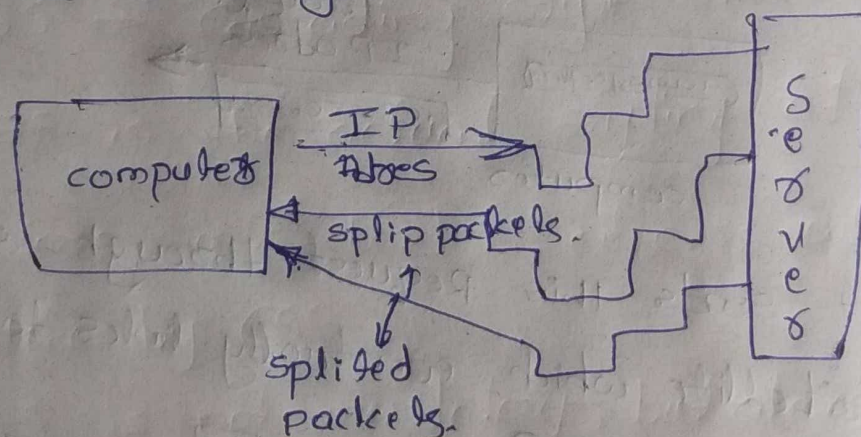 computer
IP
Adres
split packets.
splited
packets.
Server